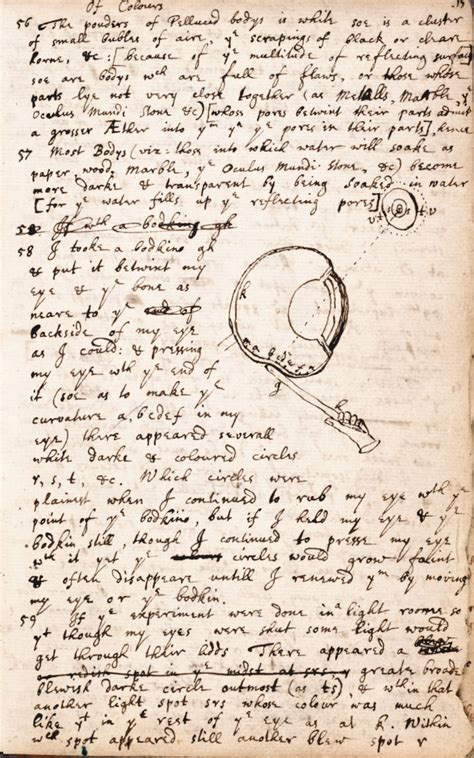 Of Colours
56 The pouders of Pellucid bodys is white soe is a cluster
of small bubles of aire, yᵉ scrapings of black or cleare
horne, &c: [because of yᵉ multitude of reflecting surfaces
soe are bodys wᶜʰ are full of flaws, or those whose
parts lye not very close together (as Metalls, Marble, yᵉ
Oculus Mundi Stone &c) [whose pores betwixt their parts admit
a grosser Æther into yᵐ yⁿ yᵉ pores in their parts], hence
57 Most Bodys (viz: those into which water will soake as
paper, wood, marble, yᵉ Oculus Mundi Stone, &c) become
more darke & transparent by being soaked in water
[for yᵉ water fills up yᵉ reflecting pores]
58 If wᵗʰ a bodkine gh
58 I tooke a bodkine gh
& put it betwixt my
eye & yᵉ bone as
neare to yᵉ end of
backside of my eye
as I could: & pressing
my eye wᵗʰ yᵉ end of
it (soe as to make yᵉ
curvature a, bcdef in my
eye) there appeared severall
white darke & coloured circles
r, s, t, &c. Which circles were
plainest when I continued to rub my eye wᵗʰ yᵉ
point of yᵉ bodkine, but if I held my eye & yᵉ
bodkin still, though I continued to presse my eye
wᵗʰ it yet yᵉ circles would grow faint
& often disappeare untill I renewed yᵐ by moving
my eye or yᵉ bodkin.
59 If yᵉ experiment were done in a light roome so
yᵗ though my eyes were shut some light would
get through their lidds There appeared a
redish spot in yᵉ midst at srs, greate broade
blewish darke circle outmost (as ts), & wᵗʰin that
another light spot srs whose colour was much
like yᵗ in yᵉ rest of yᵉ eye as at k. Within
wᶜʰ spot appeared still another blew spot r